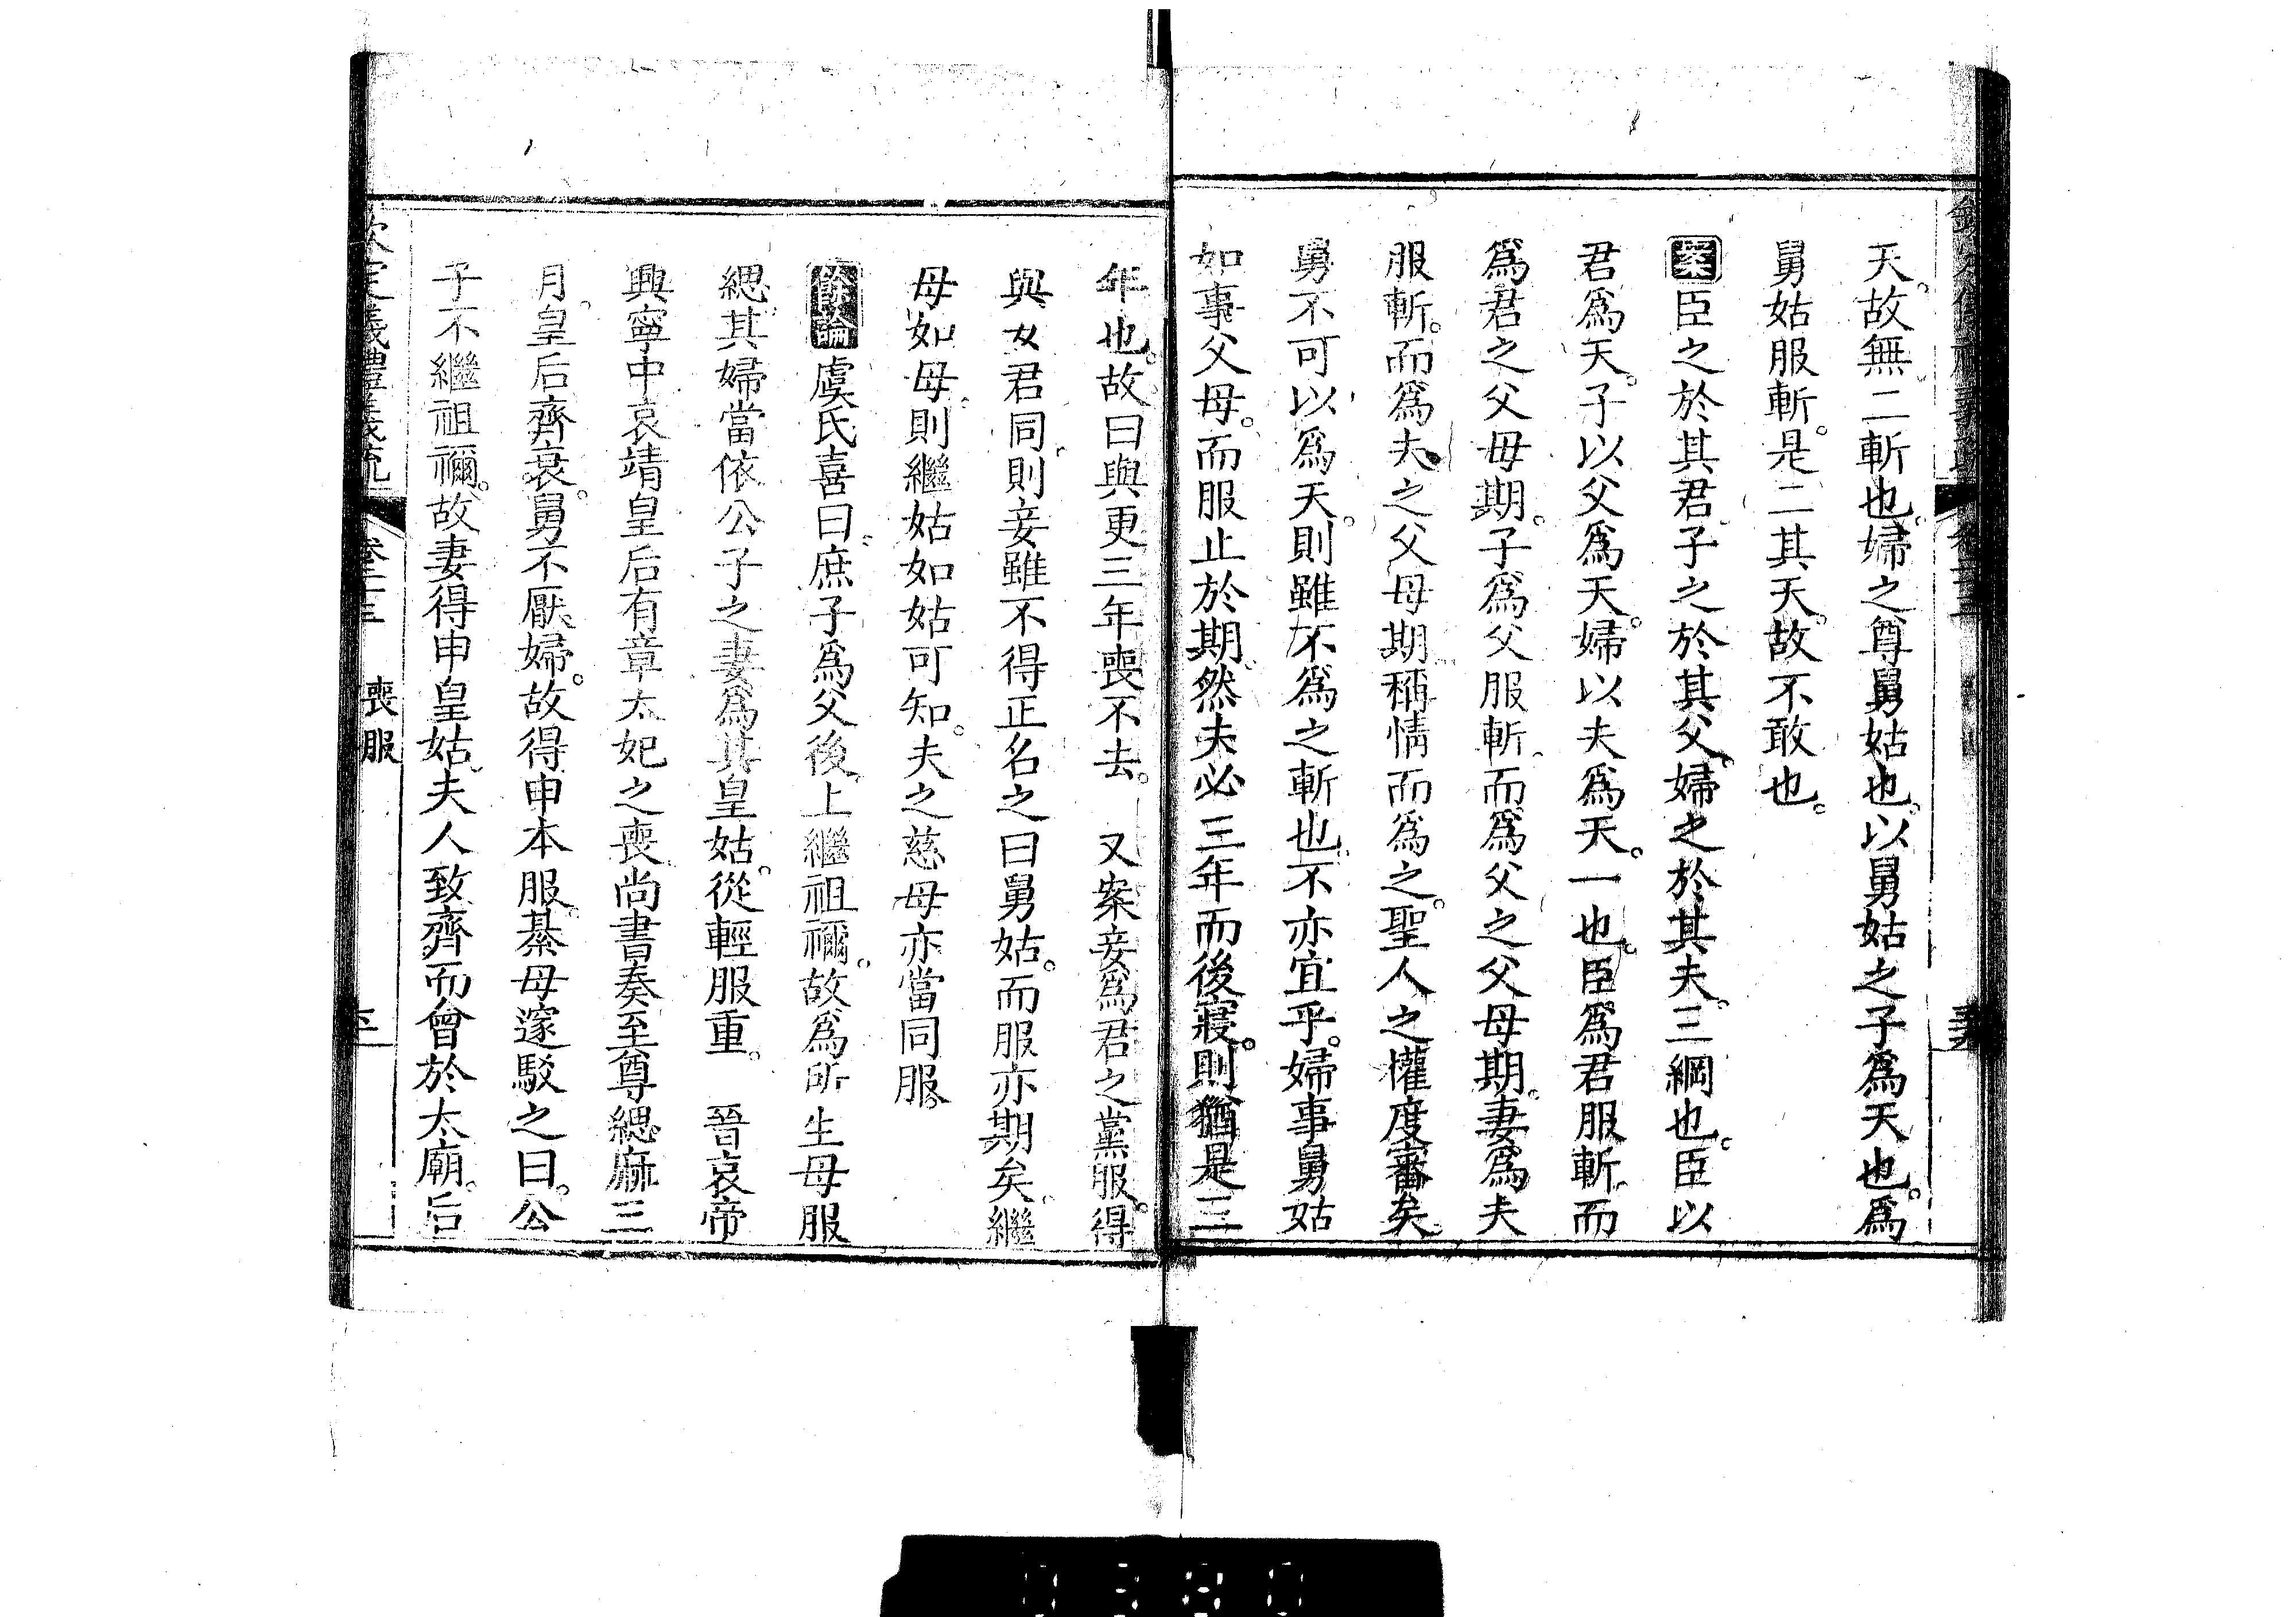 天。故無二斬也。婦之尊舅姑也。以舅姑之子爲天也。爲
舅姑服斬。是二其天。故不敢也。
案臣之於其君子之於其父。婦之於其夫。三綱也。臣以
君爲天。子以父爲天。婦以夫爲天。一也。臣爲君服斬。而
爲君之父母期。子爲父服斬。而爲父之父母期。妻爲夫
服斬。而爲夫之父母期。稱情而爲之。聖人之權度審矣。
舅不可以爲天。則雖不爲之斬也。不亦宜乎。婦事舅姑
如事父母。而服止於期。然夫必三年而後寢。則猶是三
年也。故曰與更三年喪不去。 又案妾爲君之黨服。得
與女君同。則妾雖不得正名之曰舅姑。而服亦期矣。繼
母如母。則繼姑如姑可知。夫之慈母亦當同服。
餘論虞氏喜曰。庶子爲父後。上繼祖禰。故爲所生母服
緦。其婦當依公子之妻爲其皇姑。從輕服重。 晉哀帝
興寧中哀靖皇后有章太妃之喪。尚書奏至尊緦麻三
月。皇后齊衰。舅不厭婦。故得申本服。綦母邃駁之曰。公
子不繼祖禰。故妻得申皇姑。夫人致齊而會於太廟。后
欽定義禮義疏 卷二十三 喪服